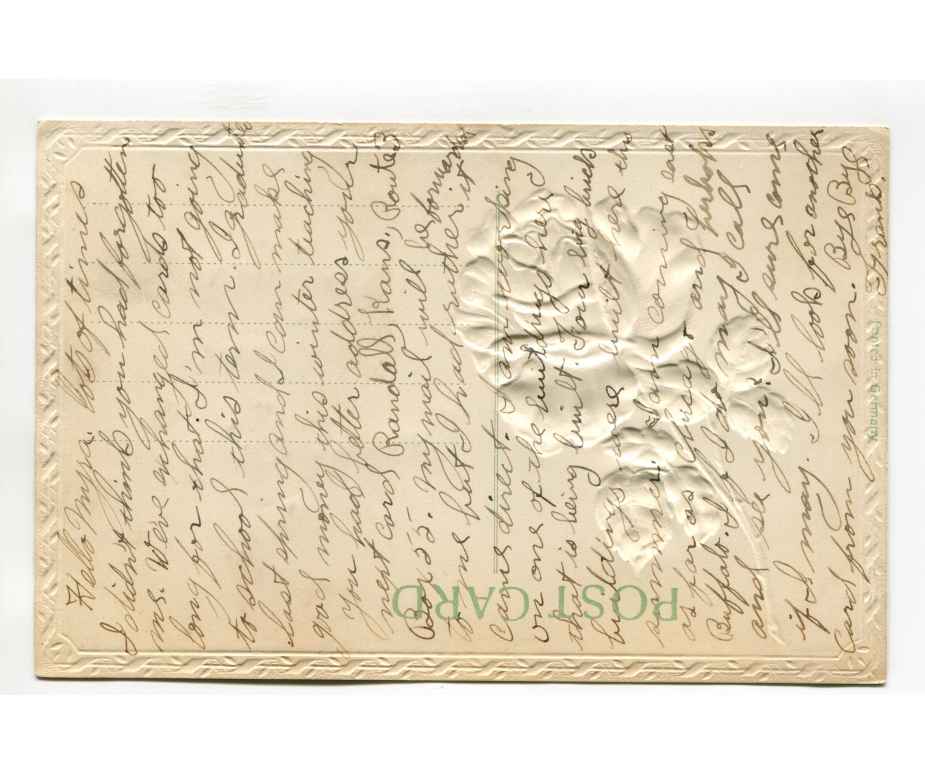 Hello Mya. Lots of times
I didn't think you had forgotten
me. We've exchanged cards too
long for that. I'm not going
to school this term. I graduated
last spring and I can make
good money this winter teaching
you had better address your
next card Randall Kans, Route 2
Box 22. My mail will be forwarded
to me but I had rather it
came direct. I am
on one of the hundreds
that is being built. Four big bricks
buildings were built here this
summer. I am coming east
as far as Chicago and perhaps
Buffalo. If I do may I call
and see you? I'll sure come
if I may. I'll look for another
card from you soon. Bye Bye
POST CARD
Printed in Germany